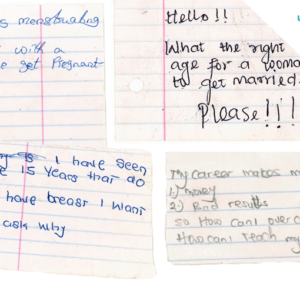 s menstruating
with a
e get Pregnant
Hello!!
What the right
age for a woma
to get married.
Please!!!
I have seen
15 years that do
have breast I want
ask why
My career makes m
1) money
2) Bad results
so How can I over c
How can I reach my